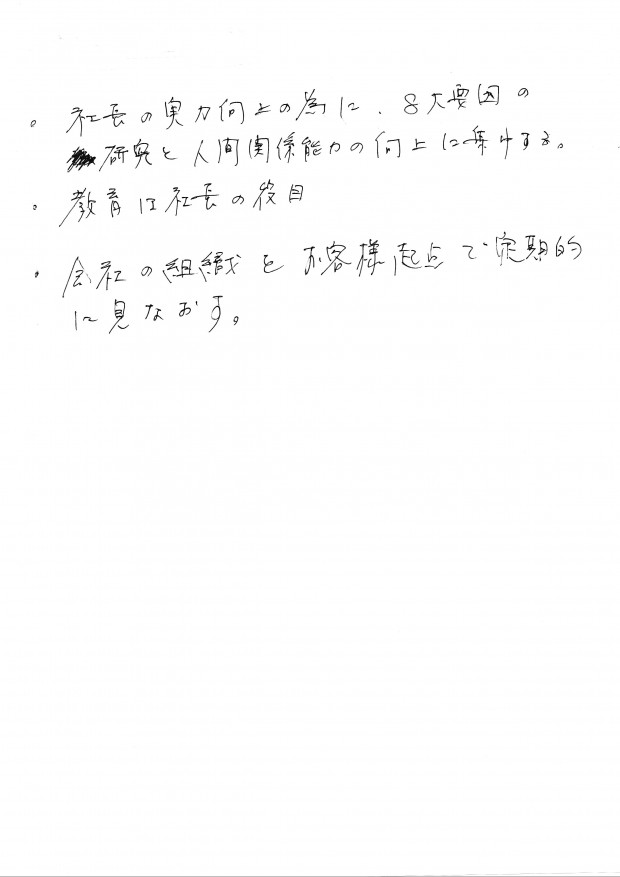 。社長の実力向上の為に、8大要因の
研究と人間関係能力の向上に集中する。
。教育は社長の役目
・会社の組織をお客様起点で定期的
に見なおす。